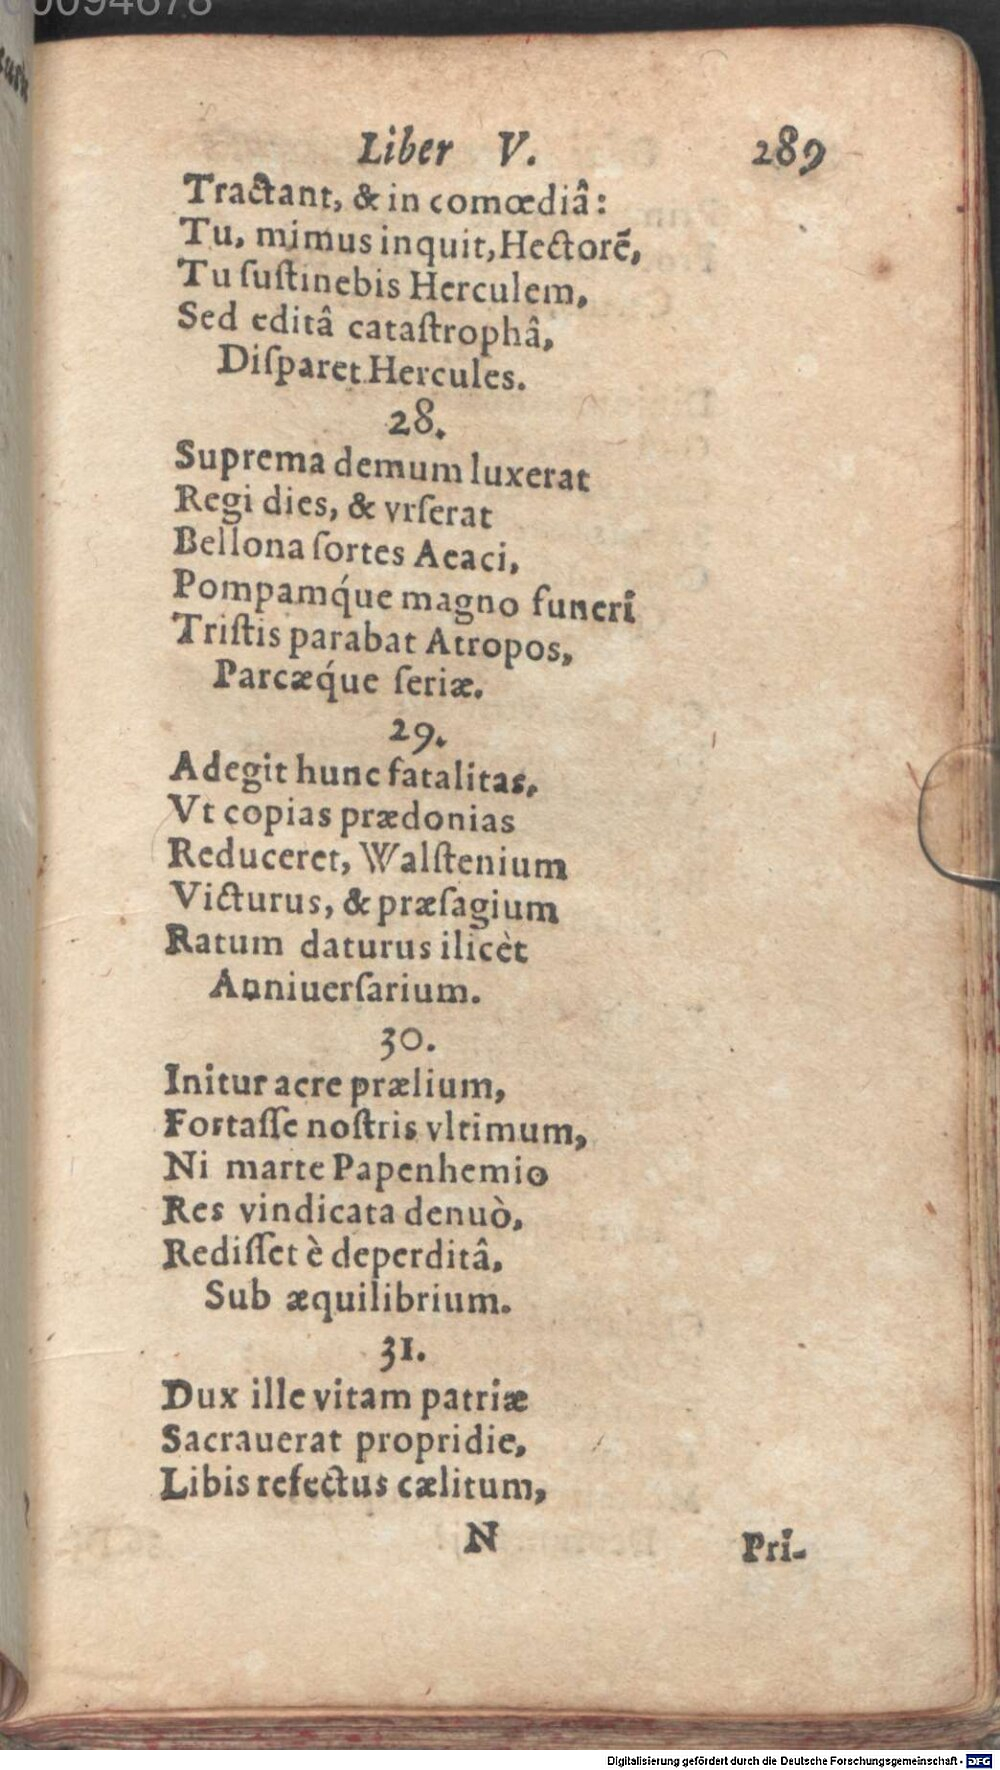 00094678
Liber V. 289
Tractant, & in comœdiâ:
Tu, mimus inquit, Hectorē,
Tu ſuſtinebis Herculem,
Sed editâ cataſtrophâ,
Diſparet Hercules.
28.
Suprema demum luxerat
Regi dies, & vrſerat
Bellona ſortes Aeaci,
Pompamq́ue magno funeri
Triſtis parabat Atropos,
Parcæq́ue ſeriæ.
29.
Adegit hunc fatalitas,
Vt copias prædonias
Reduceret, Walſtenium
Victurus, & præſagium
Ratum daturus ilicèt
Anniuerſarium.
30.
Initur acre prælium,
Fortaſſe noſtris vltimum,
Ni marte Papenhemio
Res vindicata denuò,
Rediſſet è deperditâ,
Sub æquilibrium.
31.
Dux ille vitam patriæ
Sacrauerat propridie,
Libis refectus cælitum,
N Pri-
Digitalisierung gefördert durch die Deutsche Forschungsgemeinschaft - DFG